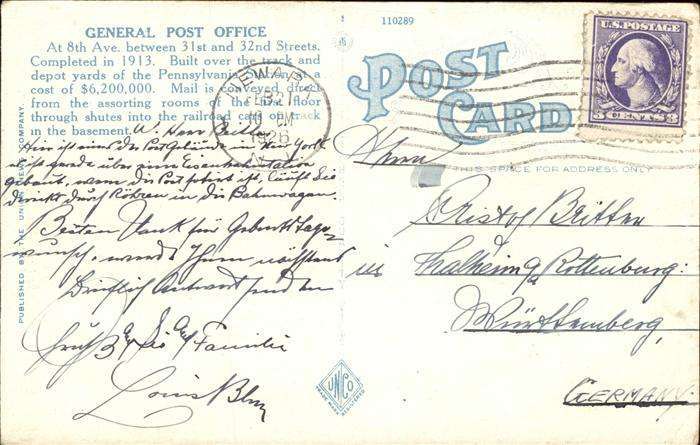 GENERAL POST OFFICE
At 8th Ave. between 31st and 32nd Streets.
Completed in 1913. Built over the track and
depot yards of the Pennsylvania at a
cost of $6,200,000. Mail is conveyed direct
from the assorting rooms of the first floor
through shutes into the railroad cars on track
in the basement.
W. Herr
Hier ist eines der Post Gebäude in New York
ist gerade über einer Eisenbahnstation
gebaut, wenn die Post sortiert ist, läuft Sie
direckt durch Röhren in die Bahnwagen.
Besten Dank für Geburtstags-
wunsch, werde Ihnen nächstens
Brieflich Antwort senden
Gruß an Sie und Familie
Louis
PUBLISHED BY THE UNION NEWS COMPANY.
110289
POST
CARD
THIS SPACE FOR ADDRESS ONLY
U.S. POSTAGE
3 CENTS 3
NEWARK
FEB 21
10 PM
1926
N.J.
Herrn
Britten
in Thalheim a/ Rottenburg:
Württemberg
GERMANY.
UNCO